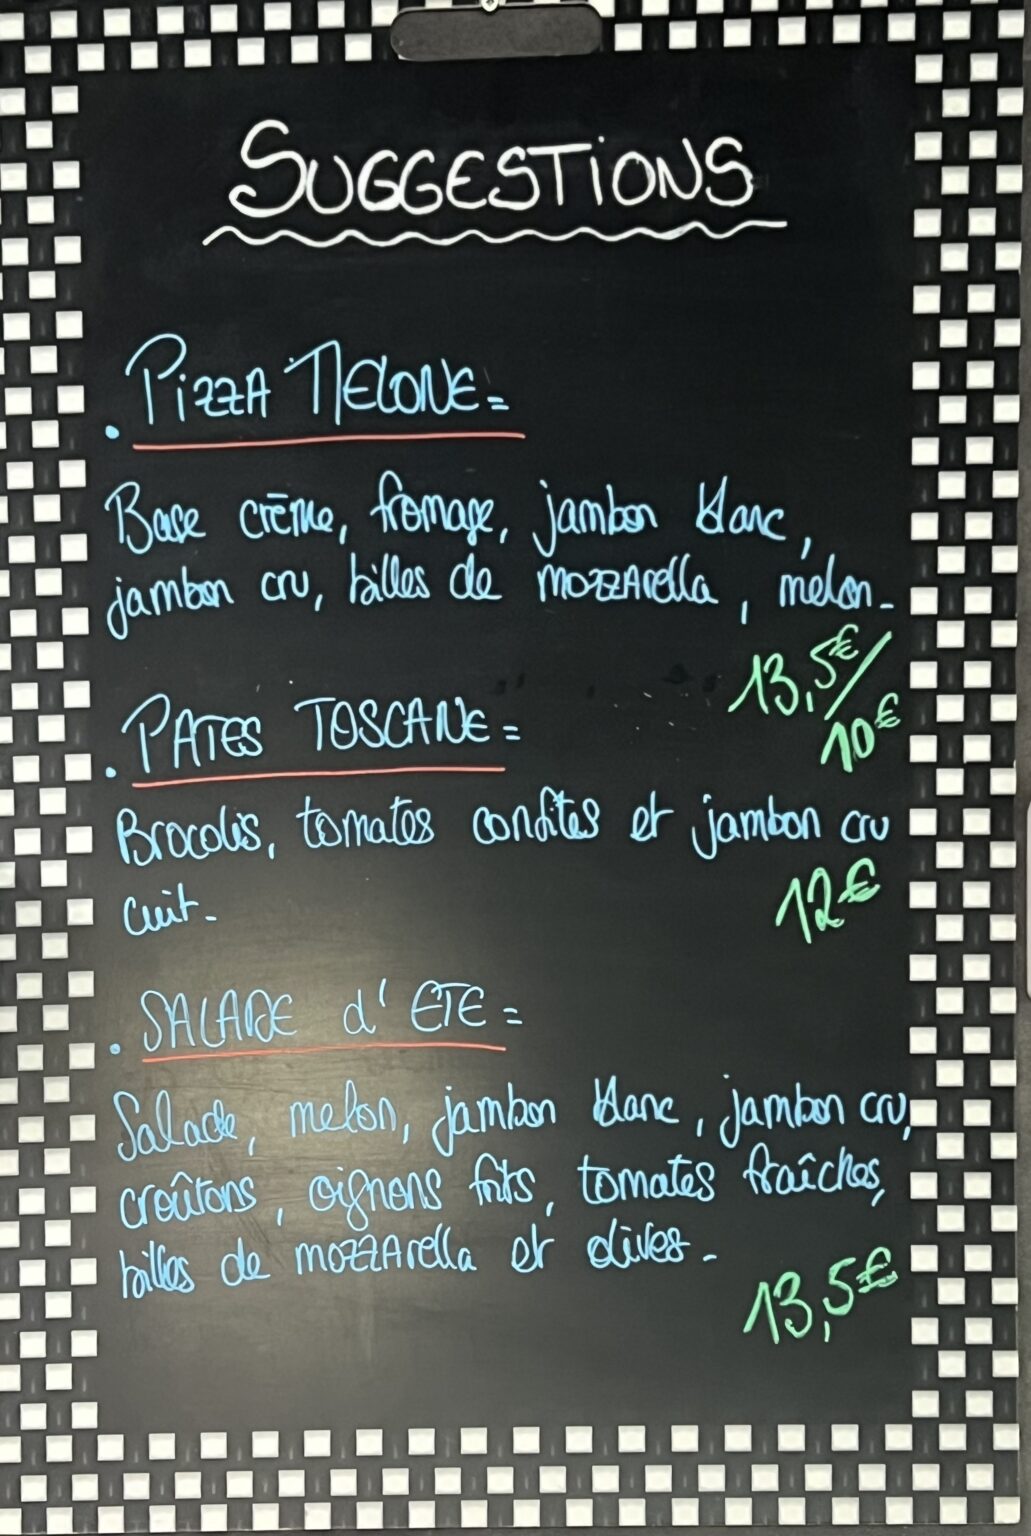 SUGGESTIONS
. PIZZA MELONE =
Base crème, fromage, jambon blanc,
jambon cru, billes de mozzarella, melon.
13,5€/
10€
. PATES TOSCANE =
Brocolis, tomates confites et jambon cru
cuit.
12€
. SALADE d'ETE =
Salade, melon, jambon blanc, jambon cru,
croûtons, oignons frits, tomates fraîches,
billes de mozzarella et olives.
13,5€